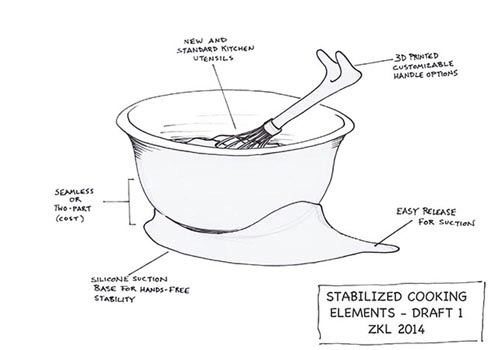 NEW AND
STANDARD KITCHEN
UTENSILS
3D PRINTED
CUSTOMIZABLE
HANDLE OPTIONS
SEAMLESS
OR
TWO-PART
(COST)
EASY RELEASE
FOR SUCTION
SILICONE SUCTION
BASE FOR HANDS-FREE
STABILITY
STABILIZED COOKING
ELEMENTS - DRAFT 1
ZKL 2014